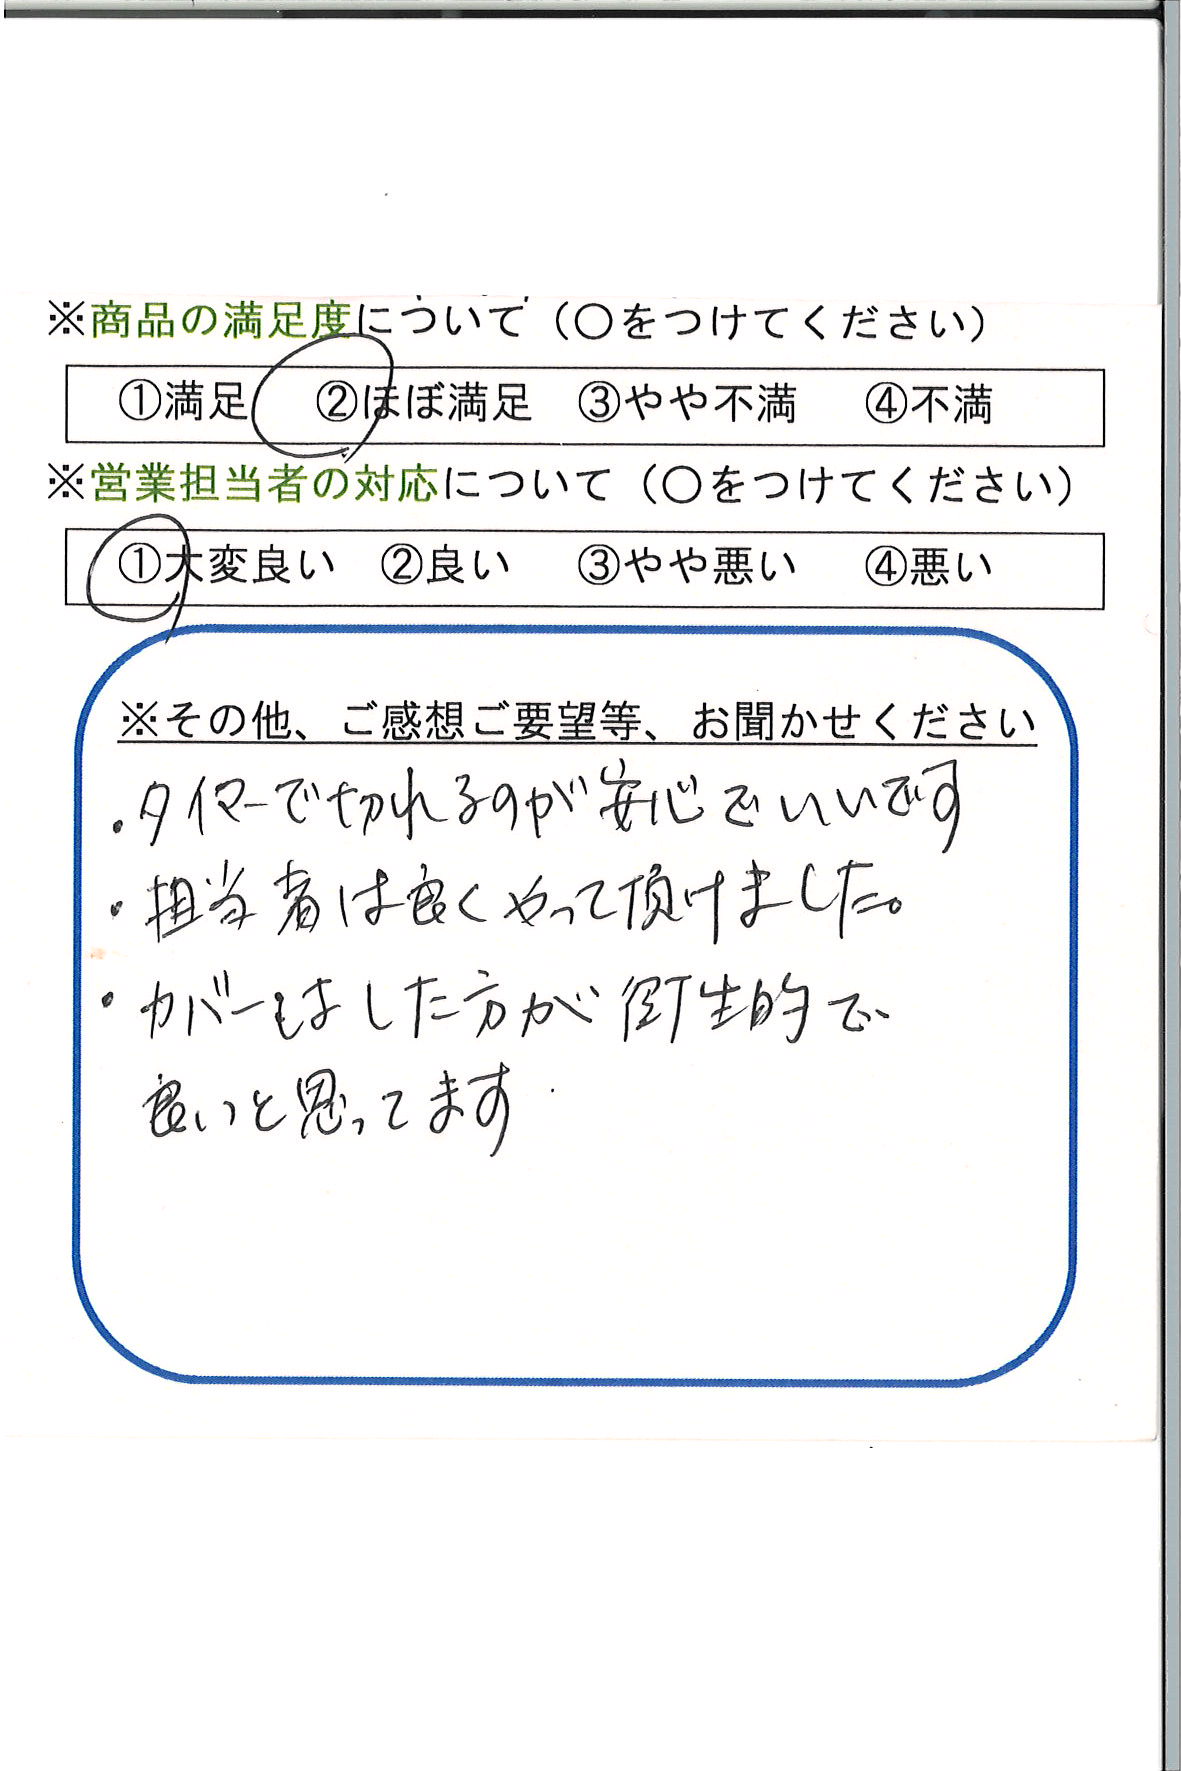 ※商品の満足度について（〇をつけてください）
①満足 ②ほぼ満足 ③やや不満 ④不満
※営業担当者の対応について（〇をつけてください）
①大変良い ②良い ③やや悪い ④悪い
※その他、ご感想ご要望等、お聞かせください
・タイマーで切れるのが安心でいいです
・担当者は良くやって頂けました。
・カバーはした方が衛生的で
良いと思ってます